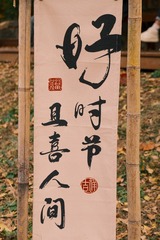 好时节
且喜人间